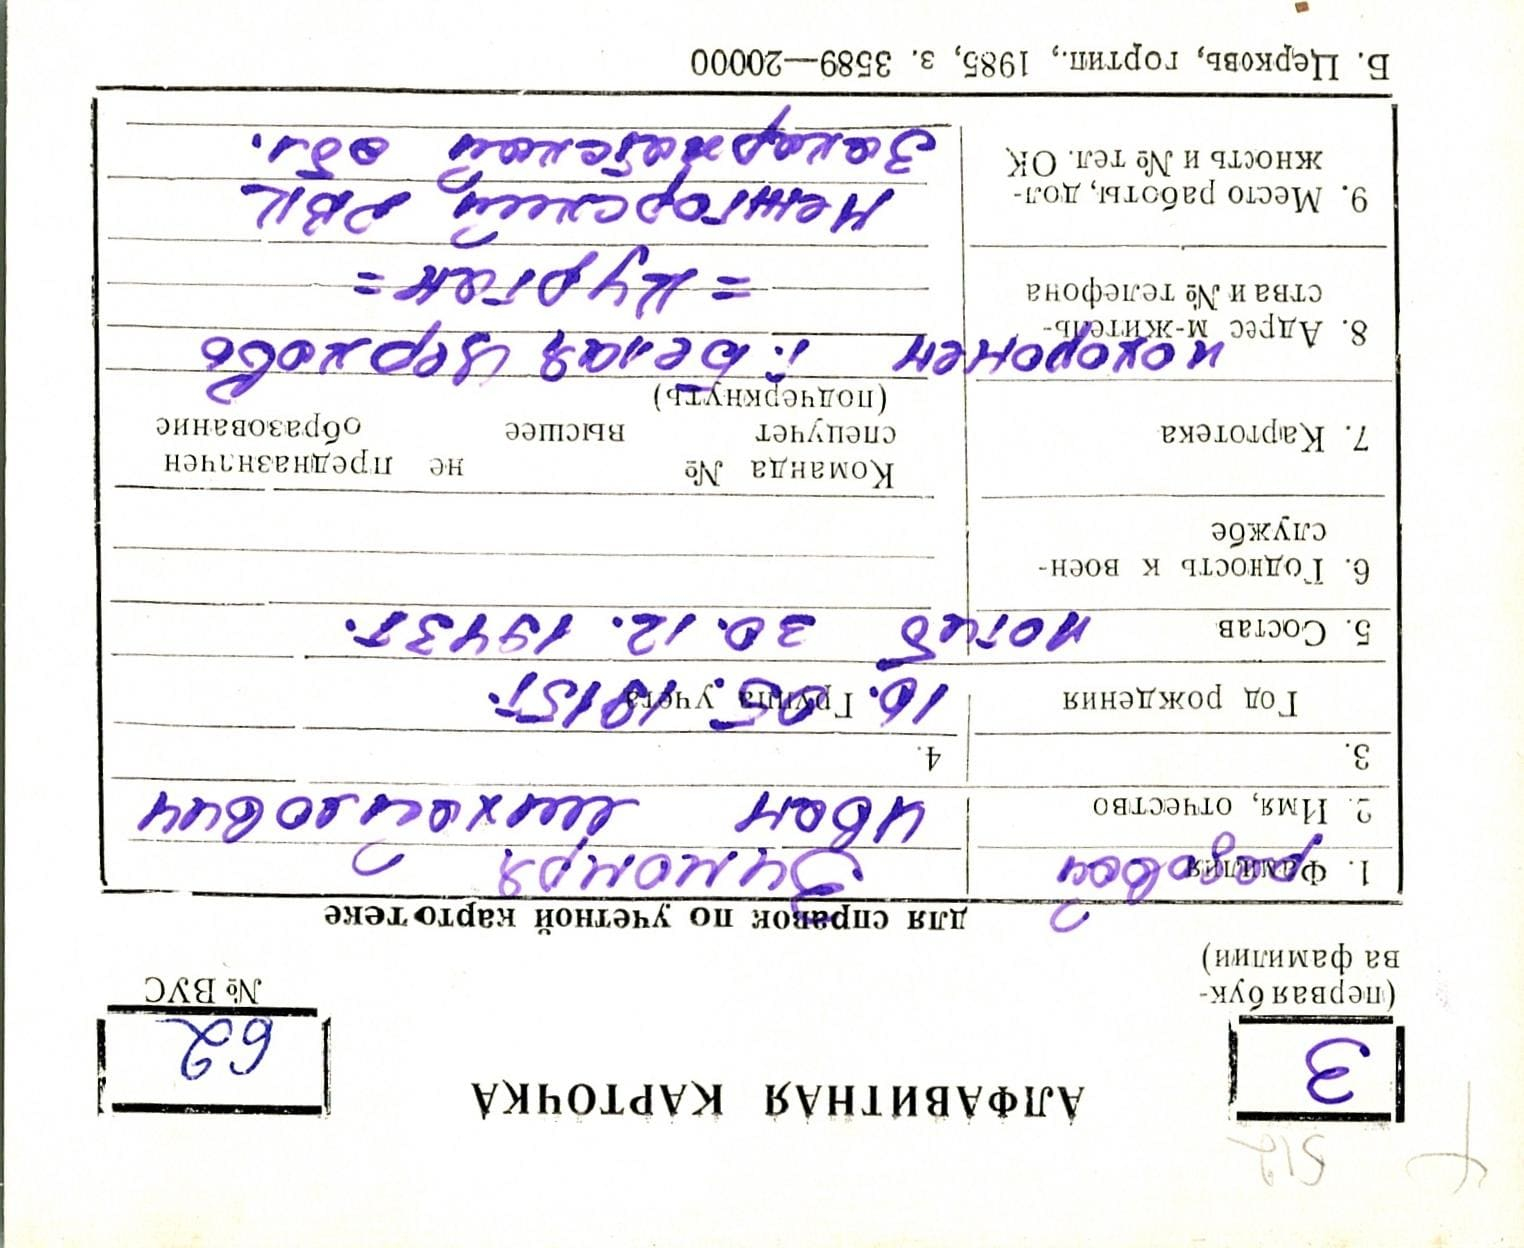 512
З
АЛФАВИТНАЯ КАРТОЧКА
62
(первая бук-
ва фамилии)
№ ВУС
для справок по учетной картотеке
1. Фамилия рядовой Зимомря
2. Имя, отчество Иван Михайлович
3. 4.
Год рождения Группа учета 10.05.1915г.
5. Состав погиб 30.12.1943г.
6. Годность к воен-
службе
7. Картотека
Команда № не предназначен
спецучет высшее образование
(подчеркнуть)
8. Адрес м-житель-
ства и № телефона
похоронен г. Белая Церковь
= курган =
9. Место работы, дол-
жность и № тел. ОК
Межгорский РВК
Закарпатской обл.
Б. Церковь, гортип., 1985, з. 3589—20000